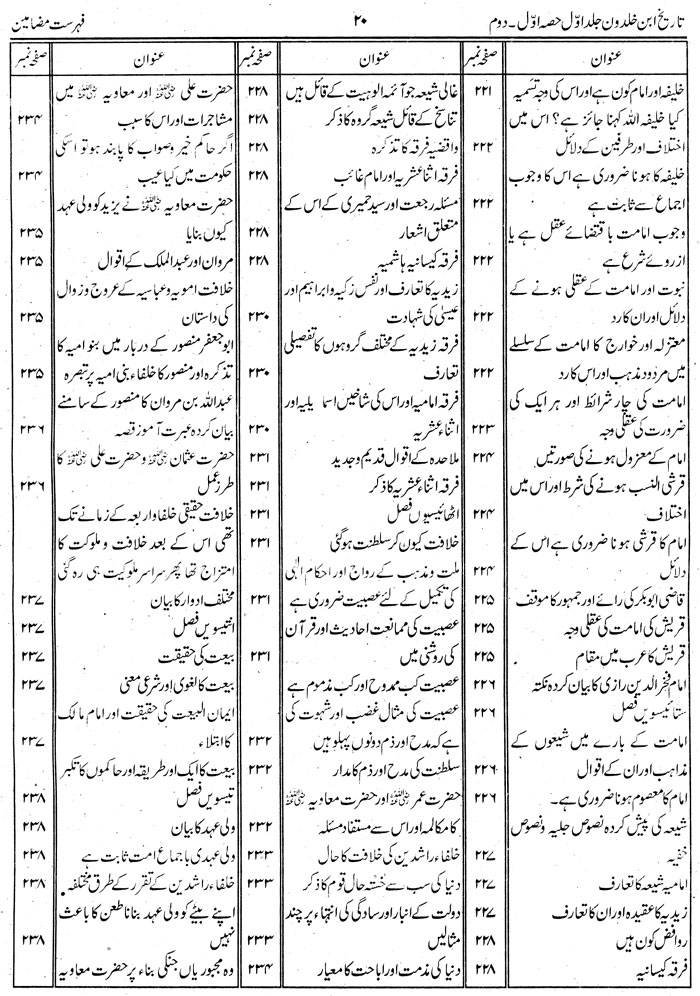 تاریخ ابن خلدون جلد اوّل حصہ اوّل۔ دوم
۲۰
فہرست مضامین
عنوان
صفحہ نمبر
خلیفہ اور امام کون ہے اور اس کی وجہ تسمیہ ۲۲۱
کیا خلیفۃ اللہ کہنا جائز ہے؟ اس میں
اختلاف اور طرفین کے دلائل ۲۲۲
خلیفہ کا ہونا ضروری ہے اس کا وجوب
اجماع سے ثابت ہے ۲۲۲
وجوب امامت باقتضائے عقل ہے یا
ازروئے شرع ہے ۲۲۲
نبوت اور امامت کے عقلی ہونے کے
دلائل اور ان کا رد ۲۲۲
معتزلہ اور خوارج کا امامت کے سلسلے
میں مردود مذہب اور اس کا رد ۲۲۲
امامت کی چار شرائط اور ہر ایک کی
ضرورت کی عقلی وجہ ۲۲۳
امام کے معزول ہونے کی صورتیں ۲۲۴
قرشی النسب ہونے کی شرط اور اس میں
اختلاف ۲۲۴
امام کا قرشی ہونا ضروری ہے اس کے
دلائل ۲۲۴
قاضی ابوبکر کی رائے اور جمہور کا موقف ۲۲۵
قریش کی امامت کی عقلی وجہ ۲۲۵
قریش کا عرب میں مقام ۲۲۵
امام فخر الدین رازی کا بیان کردہ نکتہ ۲۲۶
ستائیسویں فصل ۲۲۶
امامت کے بارے میں شیعوں کے
مذاہب اور ان کے اقوال ۲۲۶
امام کا معصوم ہونا ضروری ہے۔ ۲۲۶
شیعہ کی پیش کردہ نصوص جلیہ و نصوص
خفیہ ۲۲۷
امامیہ شیعہ کا تعارف ۲۲۷
زیدیہ کا عقیدہ اور ان کا تعارف ۲۲۷
روافض کون ہیں ۲۲۸
فرقہ کیسانیہ ۲۲۸
عنوان
صفحہ نمبر
غالی شیعہ جو آئمہ الوہیت کے قائل ہیں ۲۲۸
تناسخ کے قائل شیعہ گروہ کا ذکر ۲۲۸
واقضیہ فرقہ کا تذکرہ ۲۲۸
فرقہ اثنا عشریہ اور امام غائب ۲۲۸
مسئلہ رجعت اور سید حمیری کے اس کے
متعلق اشعار ۲۲۸
فرقہ کیسانیہ ہاشمیہ ۲۲۸
زیدیہ کا تعارف اور نفس زکیہ و ابراہیم اور
عیسیٰ کی شہادت ۲۳۰
فرقہ زیدیہ کے مختلف گروہوں کا تفصیلی
تعارف ۲۳۰
فرقہ امامیہ اور اس کی شاخیں اسماعیلیہ اور
اثناء عشریہ ۲۳۰
ملاحدہ کے اقوال قدیم و جدید ۲۳۱
فرقہ اثناء عشریہ کا ذکر ۲۳۱
اٹھائیسویں فصل ۲۳۱
خلافت کیوں کر سلطنت ہو گئی ۲۳۱
ملت و مذہب کے رواج اور احکام الٰہی
کی تکمیل کے لئے عصبیت ضروری ہے ۲۳۱
عصبیت کی ممانعت احادیث اور قرآن
کی روشنی میں ۲۳۱
عصبیت کب ممدوح اور کب مذموم ہے
عصبیت کی مثال غضب اور شہوت کی
ہے کہ مدح اور ذم دونوں پہلو ہیں ۲۳۲
سلطنت کی مدح اور ذم کا مدار ۲۳۲
حضرت عمر رضی اللہ عنہ اور حضرت معاویہ رضی اللہ عنہ
کا مکالمہ اور اس سے مستفاد مسئلہ ۲۳۲
خلفاء راشدین کی خلافت کا حال ۲۳۳
دنیا کی سب سے خستہ حال قوم کا ذکر ۲۳۳
دولت کے انبار اور سادگی کی انتہاء پر چند
مثالیں ۲۳۳
دنیا کی مذمت اور اباحت کا معیار ۲۳۴
عنوان
صفحہ نمبر
حضرت علی رضی اللہ عنہ اور معاویہ رضی اللہ عنہ میں
مشاجرات اور اس کا سبب ۲۳۴
اگر حاکم خیر و صواب کا پابند ہو تو اسکی
حکومت میں کیا عیب ۲۳۴
حضرت معاویہ رضی اللہ عنہ نے یزید کو ولی عہد
کیوں بنایا ۲۳۵
مروان اور عبدالملک کے اقوال ۲۳۵
خلافت امویہ و عباسیہ کے عروج و زوال
کی داستان ۲۳۵
ابو جعفر منصور کے دربار میں بنو امیہ کا
تذکرہ اور منصور کا خلفاء بنی امیہ پر تبصرہ ۲۳۵
عبداللہ بن مروان کا منصور کے سامنے
بیان کردہ عبرت آموز قصہ ۲۳۶
حضرت عثمان رضی اللہ عنہ و حضرت علی رضی اللہ عنہ کا
طرز عمل ۲۳۶
خلافت حقیقی خلفاء اربعہ کے زمانے تک
تھی اس کے بعد خلافت و ملوکت کا
امتزاج تھا پھر سراسر ملوکیت ہی رہ گئی
مختلف ادوار کا بیان ۲۳۷
انتیسویں فصل ۲۳۷
بیعت کی حقیقت ۲۳۷
بیعت کا لغوی اور شرعی معنی ۲۳۷
ایمان البیعت کی حقیقت اور امام مالک
کا ابتلاء ۲۳۷
بیعت کا ایک اور طریقہ اور حاکموں کا تکبر
تیسویں فصل ۲۳۸
ولی عہد کا بیان ۲۳۸
ولی عہدی باجماع امت ثابت ہے ۲۳۸
خلفاء راشدین کے تقرر کے طرق مختلفہ ۲۳۸
اپنے بیٹے کو ولی عہد بنانا طعن کا باعث
نہیں ۲۳۸
وہ مجبوریاں جنکی بناء پر حضرت معاویہ